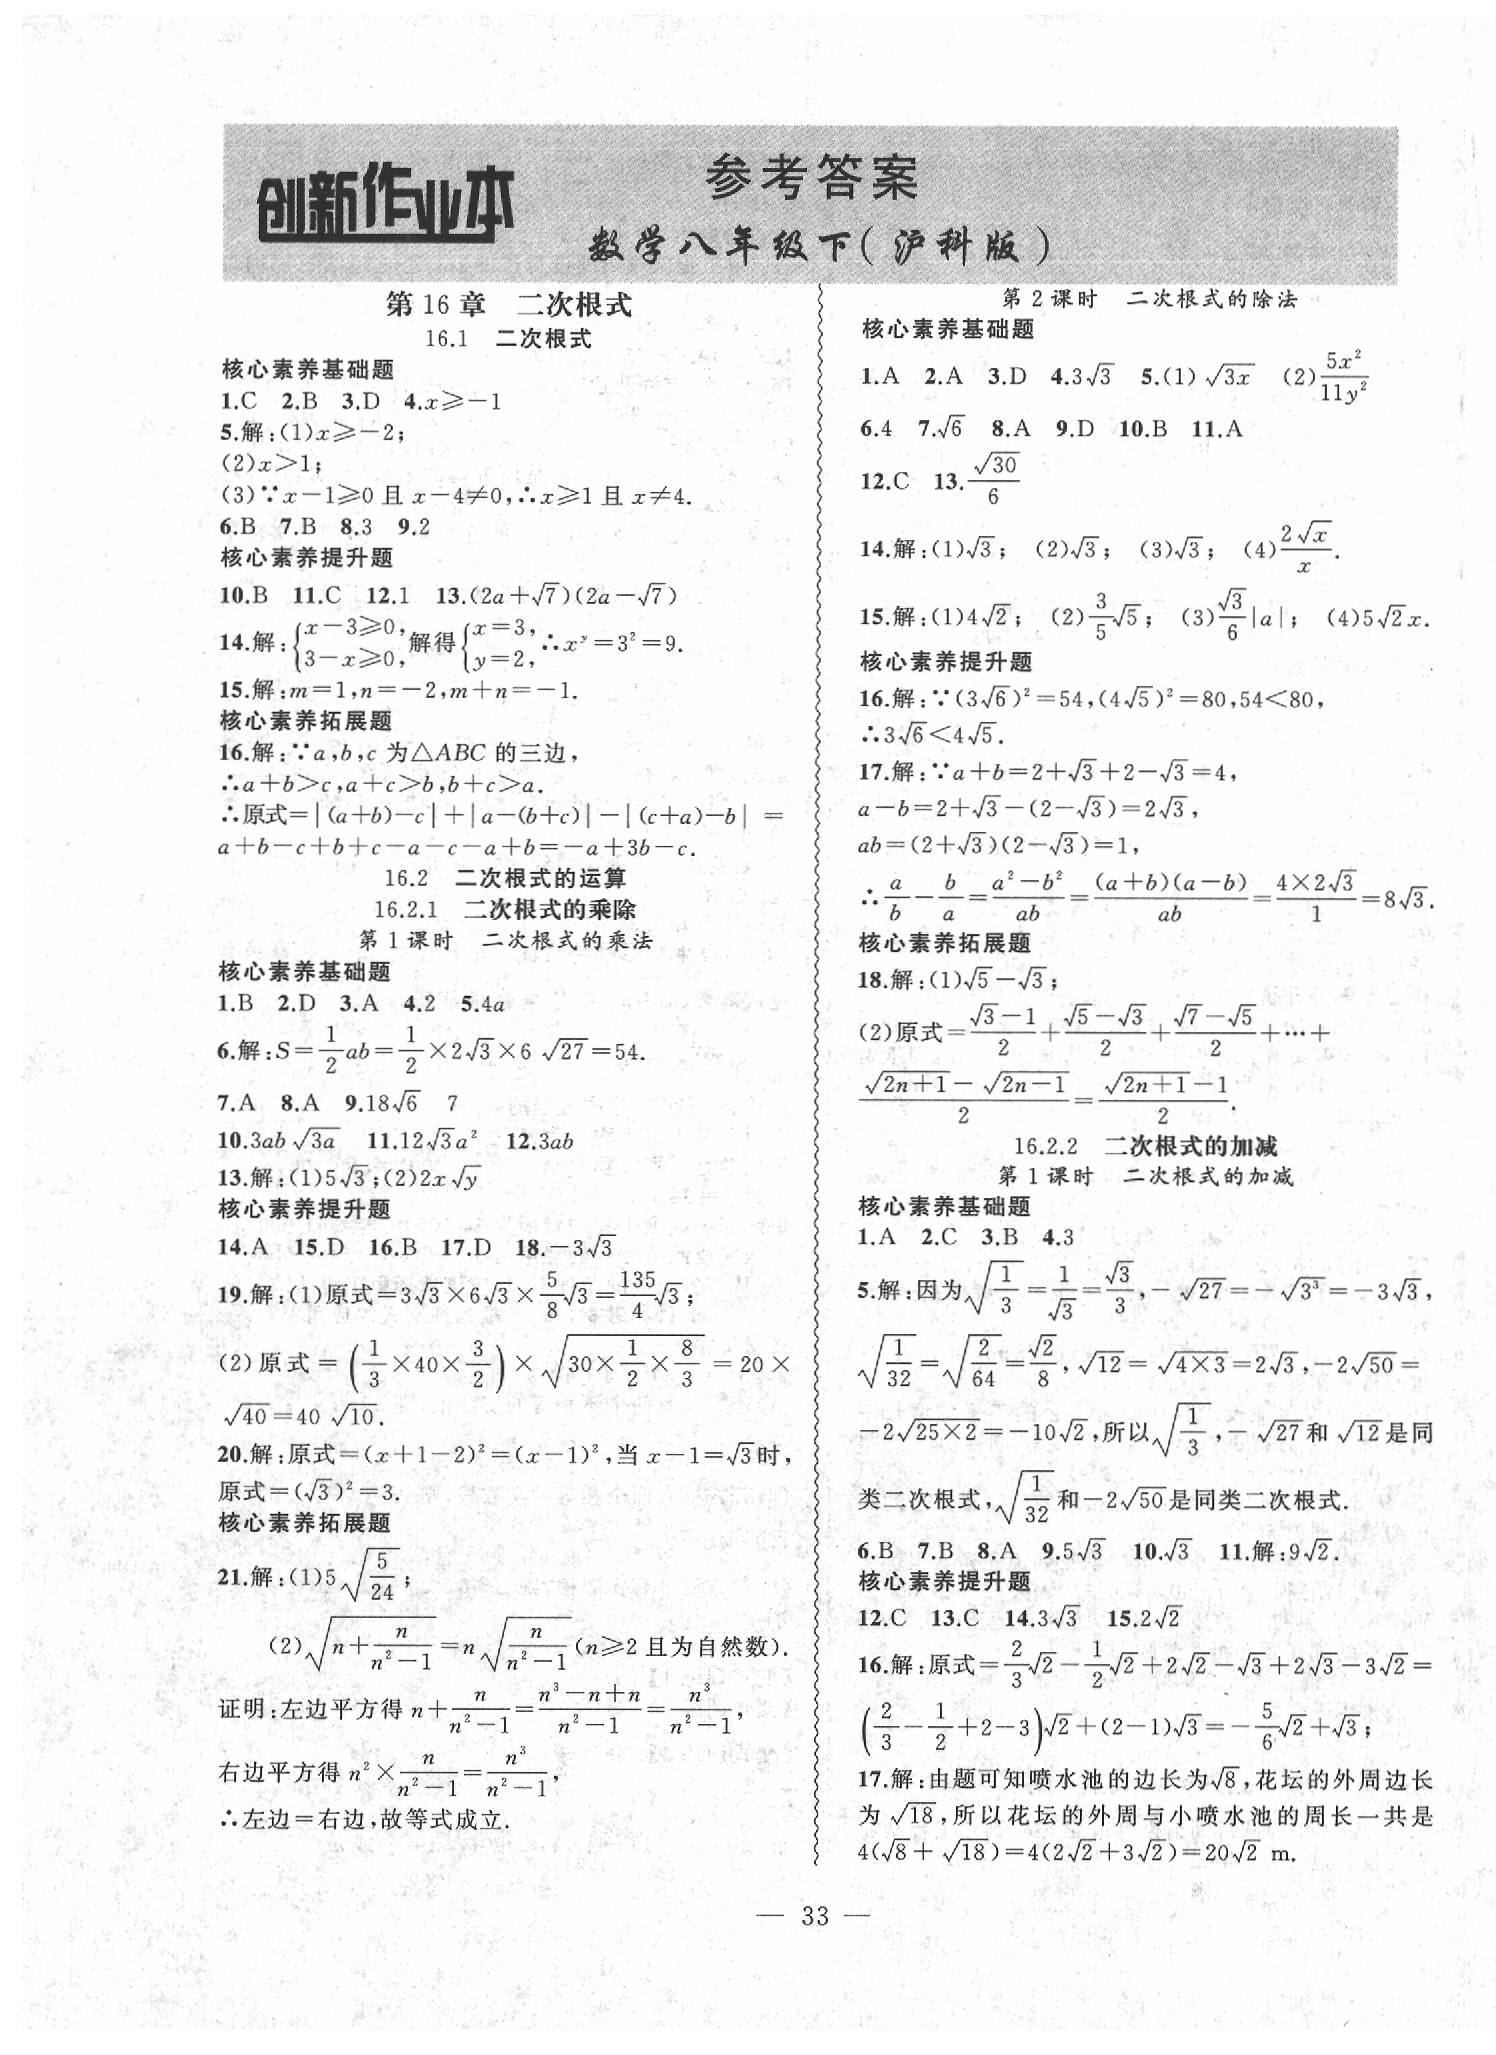 创新作业本
参考答案
数学八年级下(沪科版)
第16章 二次根式
16.1 二次根式
核心素养基础题
1.C 2.B 3.D 4.x≥-1
5.解:(1)x≥-2;
(2)x>1;
(3)∵x-1≥0且x-4≠0,∴x≥1且x≠4.
6.B 7.B 8.3 9.2
核心素养提升题
10.B 11.C 12.1 13.(2a+√7)(2a-√7)
14.解:{x-3≥0, 3-x≥0, 解得{x=3, y=2, ∴x^y=3²=9.
15.解:m=1,n=-2,m+n=-1.
核心素养拓展题
16.解:∵a,b,c为△ABC的三边,
∴a+b>c,a+c>b,b+c>a.
∴原式=|(a+b)-c|+|a-(b+c)|-|(c+a)-b|=
a+b-c+b+c-a-c-a+b=-a+3b-c.
16.2 二次根式的运算
16.2.1 二次根式的乘除
第1课时 二次根式的乘法
核心素养基础题
1.B 2.D 3.A 4.2 5.4a
6.解:S=1/2ab=1/2×2√3×6√27=54.
7.A 8.A 9.18√6 7
10.3ab√(3a) 11.12√3a² 12.3ab
13.解:(1)5√3;(2)2x√y
核心素养提升题
14.A 15.D 16.B 17.D 18.-3√3
19.解:(1)原式=3√3×6√3×5/8√3=135/4√3;
(2)原式=(1/3×40×3/2)×√(30×1/2×8/3)=20×
√40=40√10.
20.解:原式=(x+1-2)²=(x-1)²,当x-1=√3时,
原式=(√3)²=3.
核心素养拓展题
21.解:(1)5√(5/24);
(2)√(n+n/(n²-1))=n√(n/(n²-1))(n≥2且为自然数).
证明:左边平方得n+n/(n²-1)=(n³-n+n)/(n²-1)=n³/(n²-1),
右边平方得n²×n/(n²-1)=n³/(n²-1),
∴左边=右边,故等式成立.
第2课时 二次根式的除法
核心素养基础题
1.A 2.A 3.D 4.3√3 5.(1)√(3x) (2)5x²/11y²
6.4 7.√6 8.A 9.D 10.B 11.A
12.C 13.√30/6
14.解:(1)√3; (2)√3; (3)√3; (4)2√x/x.
15.解:(1)4√2; (2)3/5√5; (3)√3/6|a|; (4)5√2x.
核心素养提升题
16.解:∵(3√6)²=54,(4√5)²=80,54<80,
∴3√6<4√5.
17.解:∵a+b=2+√3+2-√3=4,
a-b=2+√3-(2-√3)=2√3,
ab=(2+√3)(2-√3)=1,
∴a/b-b/a=(a²-b²)/ab=(a+b)(a-b)/ab=4×2√3/1=8√3.
核心素养拓展题
18.解:(1)√5-√3;
(2)原式=(√3-1)/2+(√5-√3)/2+(√7-√5)/2+…+
(√(2n+1)-√(2n-1))/2=(√(2n+1)-1)/2.
16.2.2 二次根式的加减
第1课时 二次根式的加减
核心素养基础题
1.A 2.C 3.B 4.3
5.解:因为√(1/3)=1/√3=√3/3,-√27=-√(3³)=-3√3,
√(1/32)=√(2/64)=√2/8,√12=√(4×3)=2√3,-2√50=
-2√(25×2)=-10√2,所以√(1/3),-√27和√12是同
类二次根式,√(1/32)和-2√50是同类二次根式.
6.B 7.B 8.A 9.5√3 10.√3 11.解:9√2.
核心素养提升题
12.C 13.C 14.3√3 15.2√2
16.解:原式=2/3√2-1/2√2+2√2-√3+2√3-3√2=
(2/3-1/2+2-3)√2+(2-1)√3=-5/6√2+√3;
17.解:由题可知喷水池的边长为√8,花坛的外周边长
为√18,所以花坛的外周与小喷水池的周长一共是
4(√8+√18)=4(2√2+3√2)=20√2 m.
— 33 —